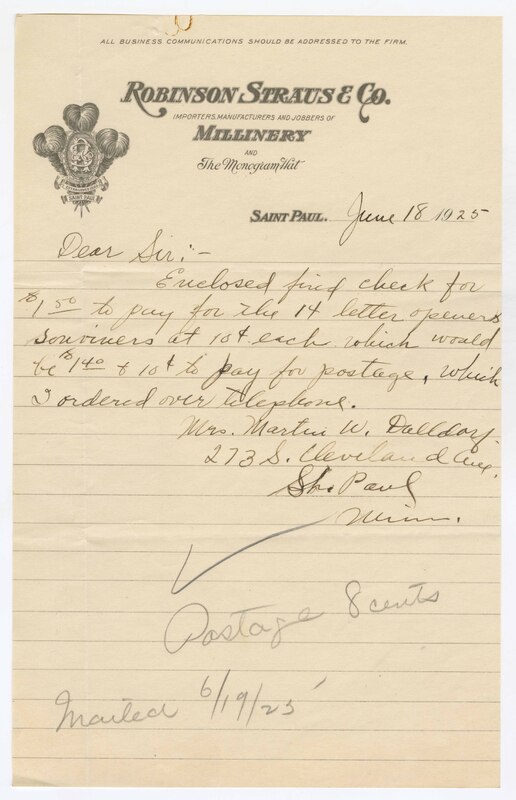 ALL BUSINESS COMMUNICATIONS SHOULD BE ADDRESSED TO THE FIRM.
ROBINSON STRAUS & CO.
IMPORTERS, MANUFACTURERS AND JOBBERS OF
MILLINERY
AND
The Monogram Hat
SAINT PAUL
SAINT PAUL. June 18 1925
Dear Sir:-
Enclosed find check for
$1.50 to pay for the 14 letter openers
souviners at 10¢ each which would
be $1.40 & 10¢ to pay for postage, which
I ordered over telephone.
Mrs. Martin W. Dalldorf.
273 S. Cleveland Ave.
St. Paul
Minn.
Postage 8 cents
Mailed 6/19/25